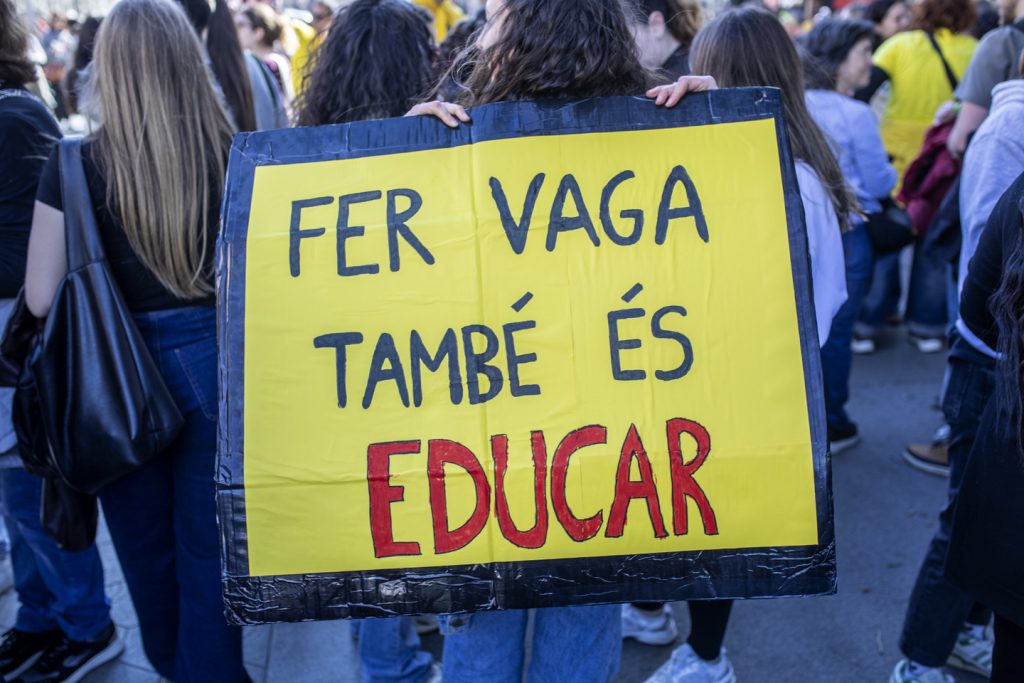 FER VAGA
TAMBÉ ÉS
EDUCAR